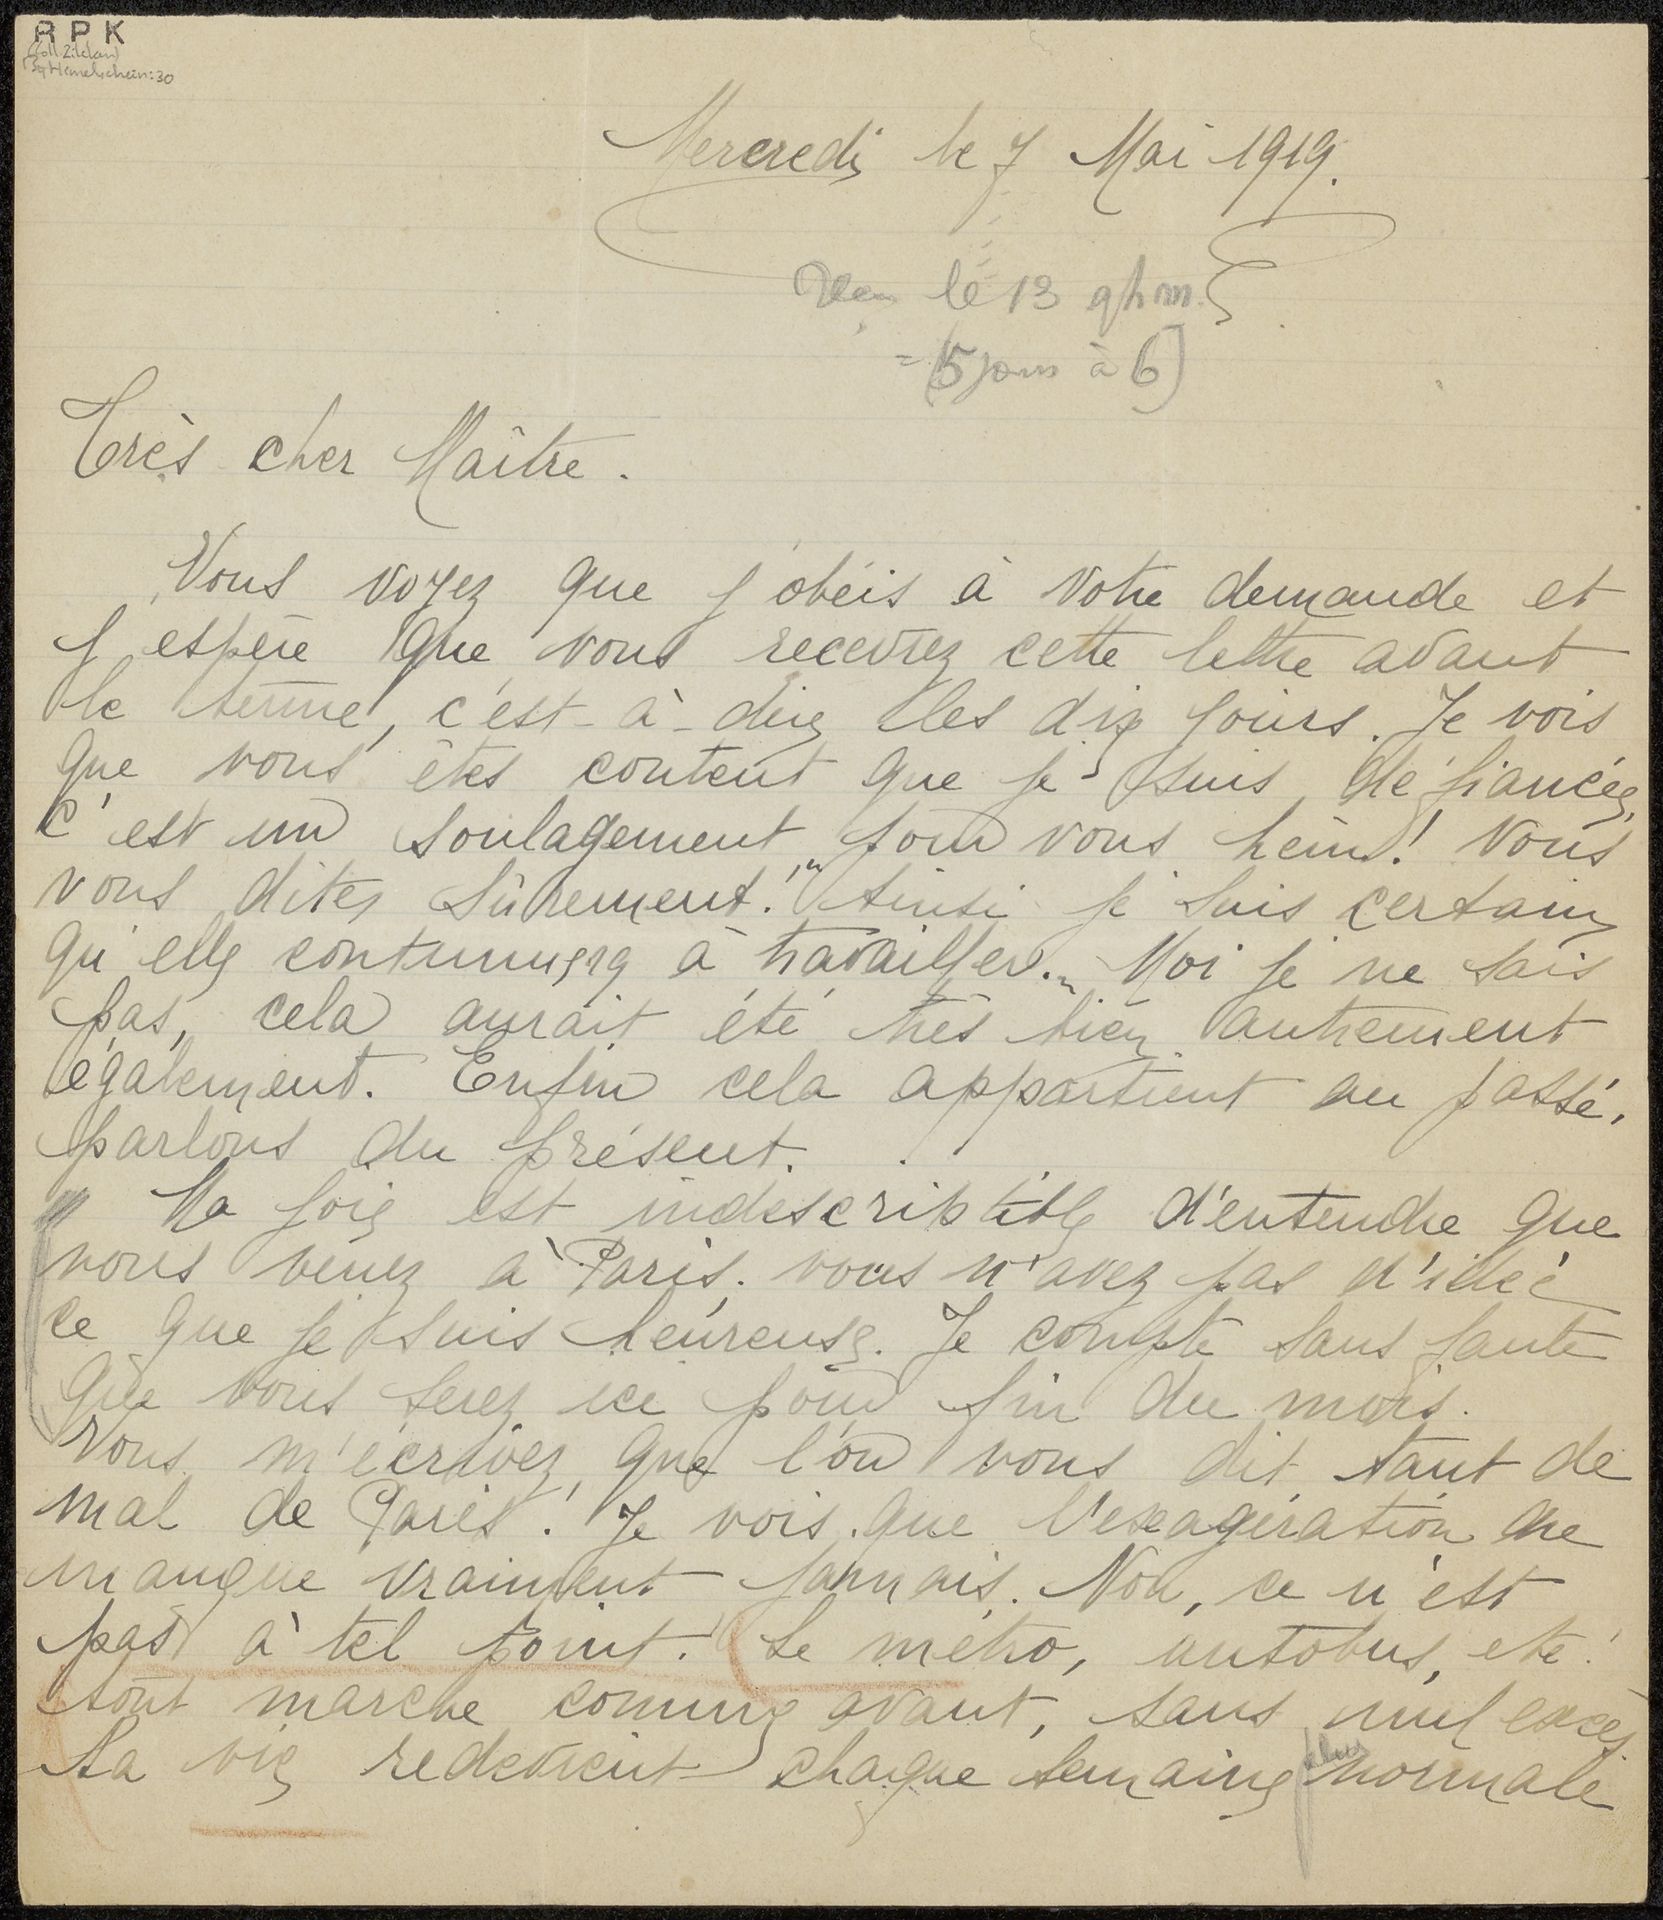 RPK
Mercredi le 7 Mai 1919.
le 13 9h m.
= (5 jours à 6)
Très cher Maître.
Vous voyez que j'obéis à votre demande et
j'espère que vous recevrez cette lettre avant
le terme, c'est-à-dire les dix jours. Je vois
que vous êtes content que je suis défiancée,
c'est un soulagement pour vous hein! Vous
vous dites sûrement! "Ainsi je suis certain
qu'elle continuera à travailler." Moi je ne sais
pas, cela aurait été très bien autrement
également. Enfin cela appartient au passé,
parlons du présent.
Ma joie est indescriptible d'entendre que
vous venez à Paris. vous n'avez pas d'idée
ce que je suis heureuse. Je compte sans faute
que vous serez ici pour fin du mois.
Vous m'écrivez que l'on vous dit tant de
mal de Paris! Je vois que l'exagération ne
manque vraiment jamais. Non, ce n'est
pas à tel point! Le métro, autobus, etc!
tout marche comme avant, sans nul excès.
La vie redevient chaque semaine plus normale